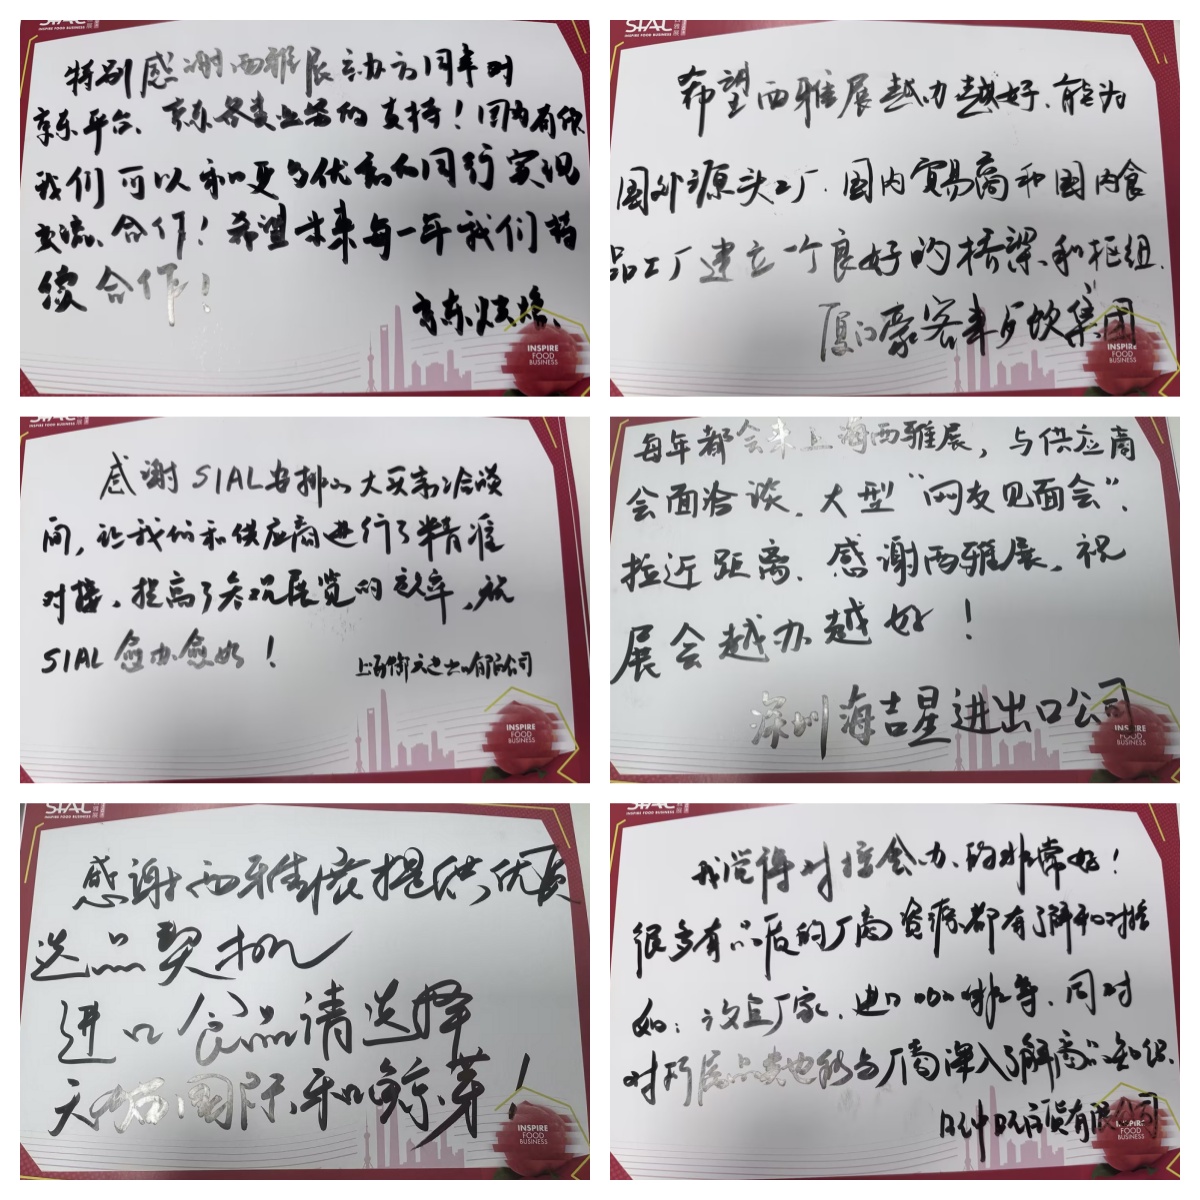 SIAL
INSPIRE FOOD BUSINESS
特别感谢西雅展主办方同年对
京东平台、京东各类业务的支持！因为有你
我们可以和更多优商人同行实现
交流、合作！希望未来每一年我们持
续合作！
京东烘焙
INSPIRE
FOOD
BUSINESS
SIAL
INSPIRE FOOD BUSINESS
希望西雅展越办越好、能为
国外源头工厂、国内贸易商和国内食
品工厂建立一个良好的桥梁和枢纽.
厦门豪客来餐饮集团
INSPIRE
FOOD
BUSINESS
SIAL
INSPIRE FOOD BUSINESS
感谢SIAL安排的大买家洽谈
间，让我们和供应商进行了精准
对接，提高了参观展览的效率，祝
SIAL愈办愈好！
上海 进出口有限公司
INSPIRE
FOOD
BUSINESS
每年都会来上海西雅展，与供应商
会面洽谈，大型“网友见面会”，
拉近距离。感谢西雅展，祝
展会越办越好！
深圳海吉星进出口公司
INSPIRE
FOOD
BUSINESS
SIAL
INSPIRE FOOD BUSINESS
感谢西雅展提供优质
选品契机
进口食品请选择
天 国际和鲸芽！
INSPIRE
FOOD
BUSINESS
SIAL
INSPIRE FOOD BUSINESS
我觉得对接会办的非常好！
很多有品质的厂商资源都有了解和对接
如：设备厂家、进口咖啡等，同时
对所属品类也能与厂商深入了解商品知识.
有限公司
INSPIRE
FOOD
BUSINESS